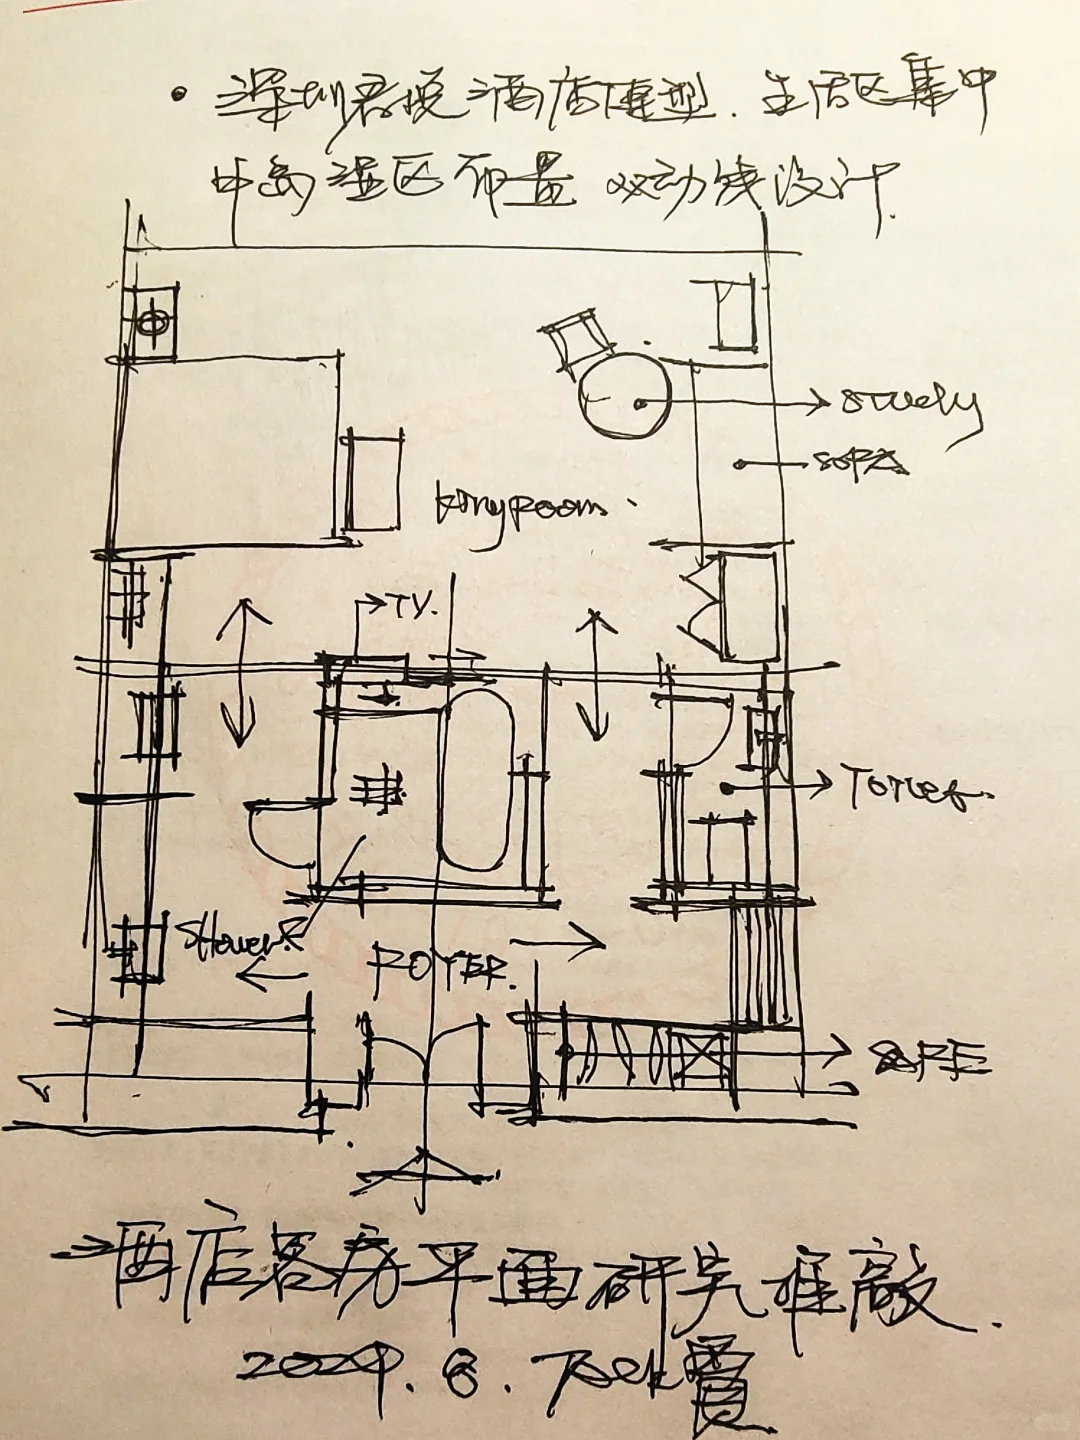 • 深圳君悦酒店原型. 生活区集中
中岛湿区布置 双动线设计.
study
SOFA
kingroom.
TV.
Toilet.
Shower
FOYER.
SAFE
→酒店客房平面研究推敲.
2024. 8.